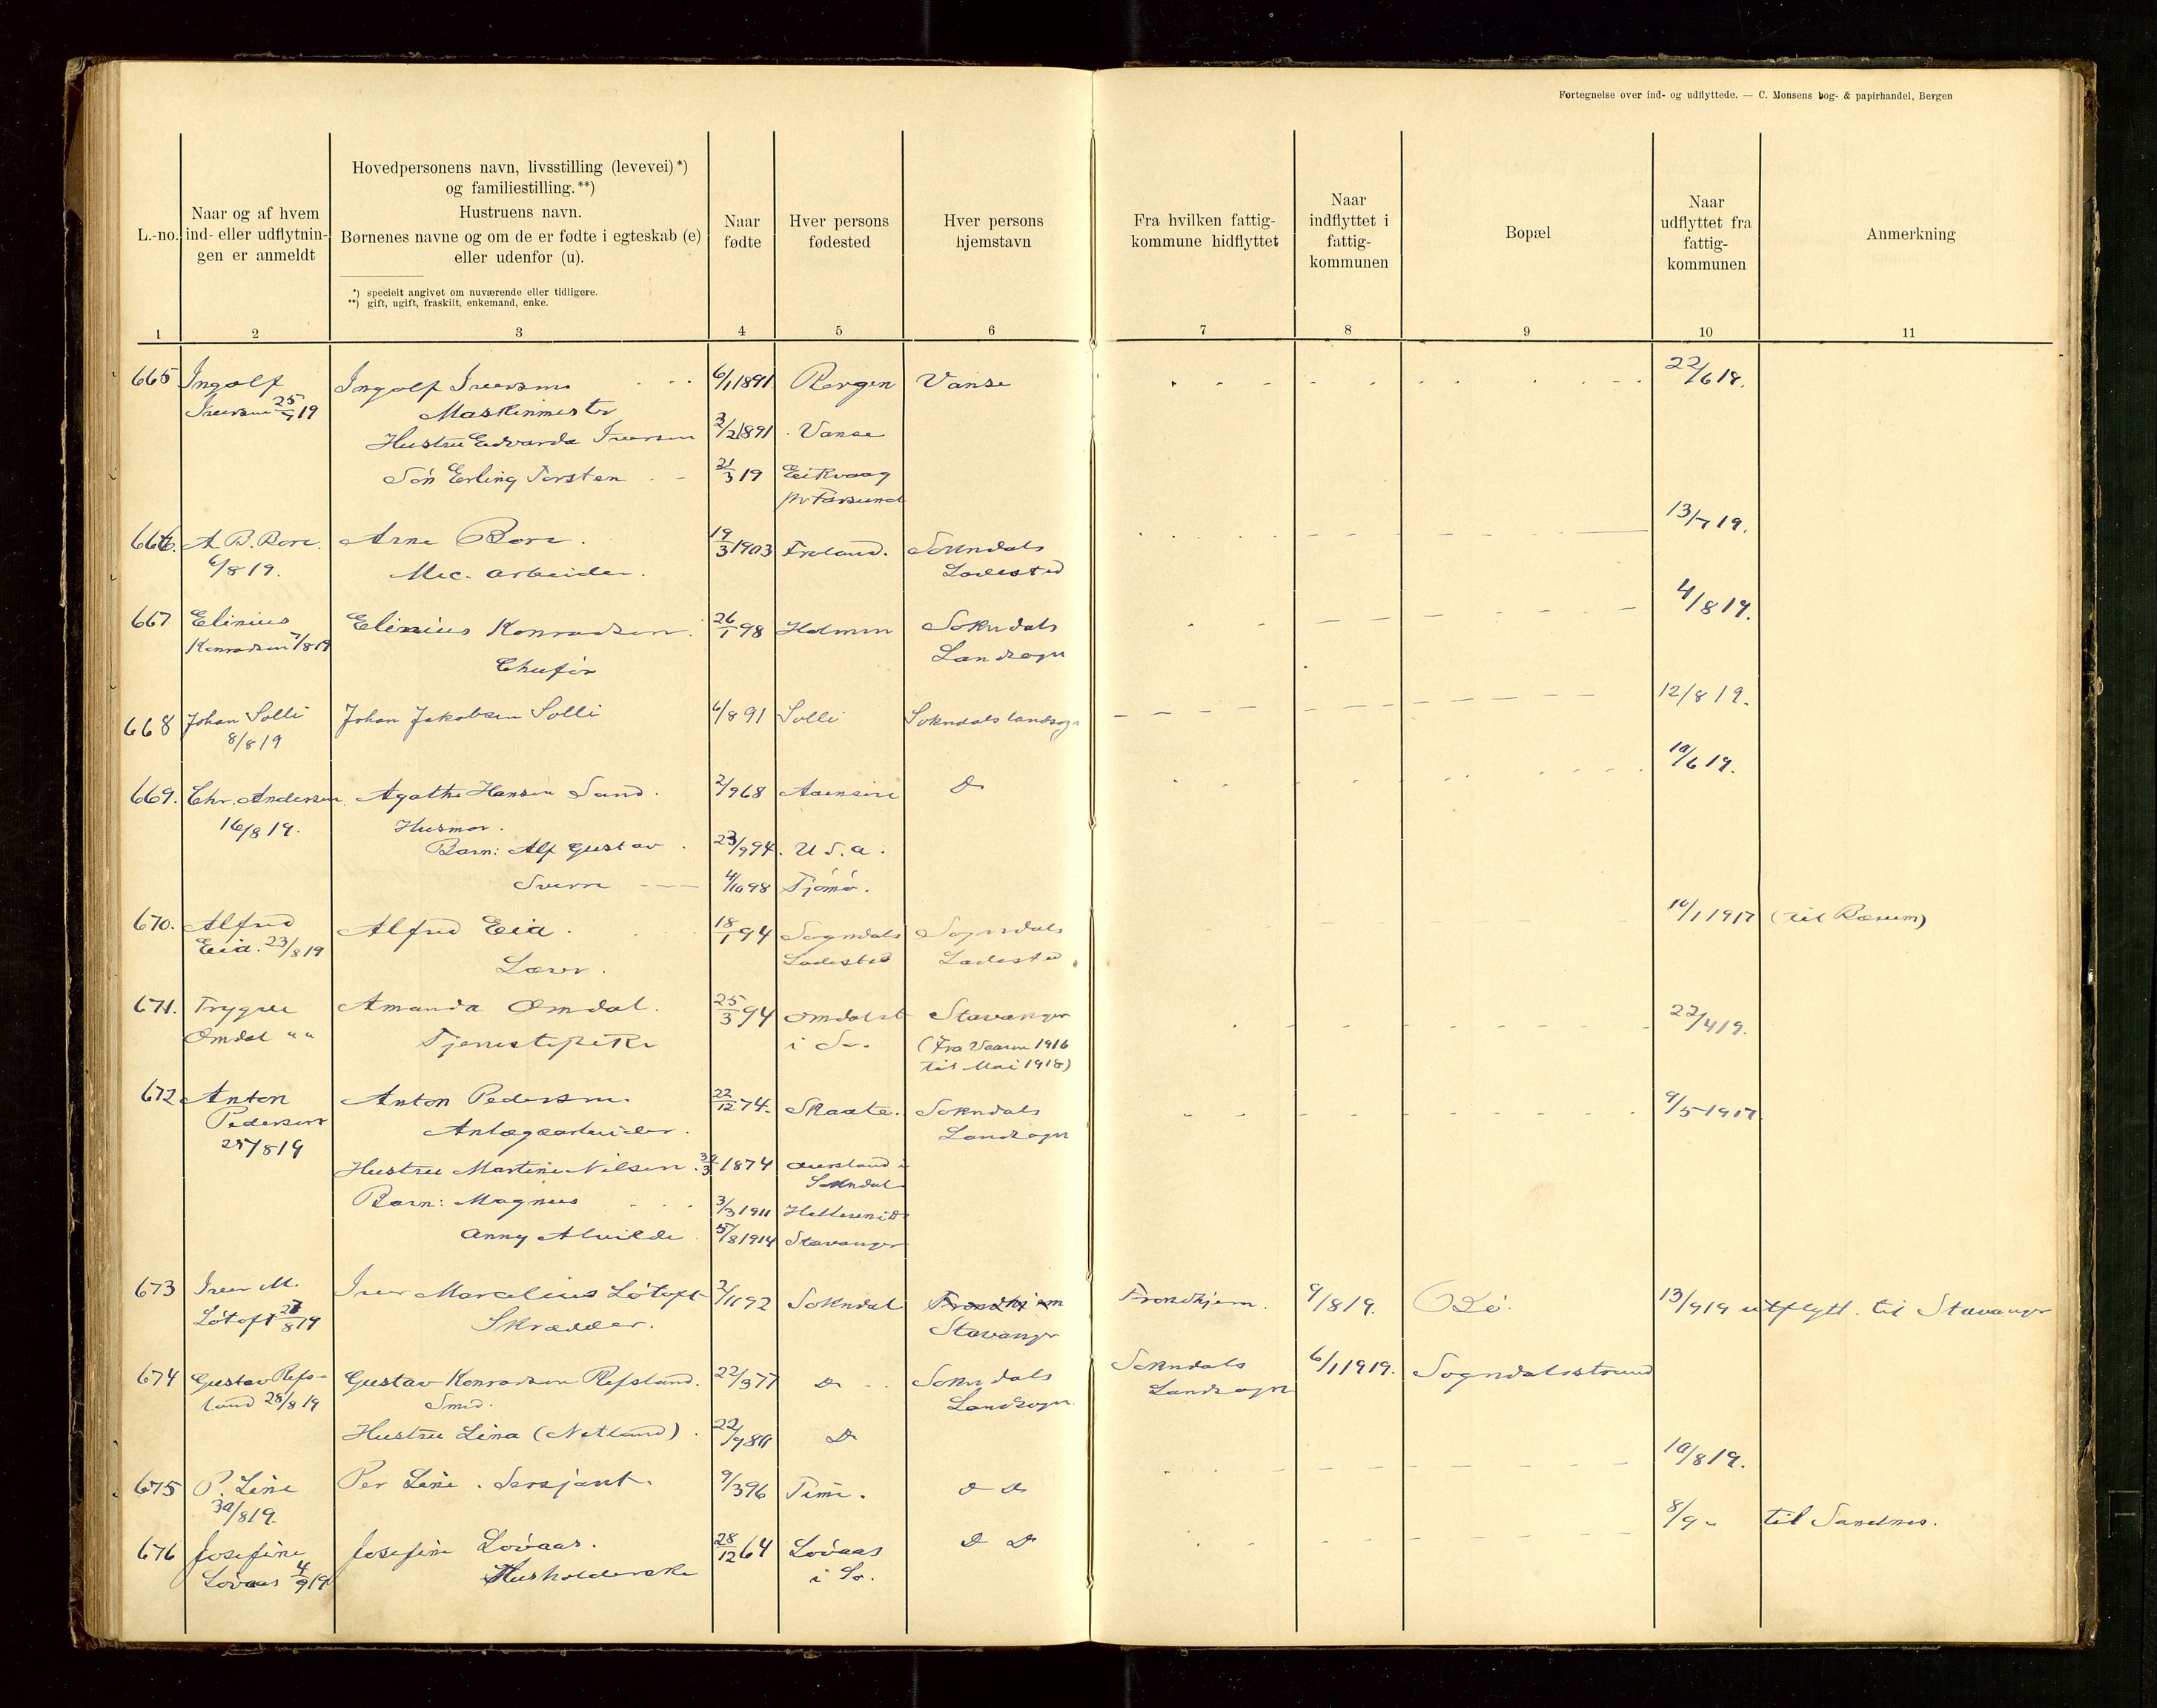 Fortegnelse over ind- og udflyttede. — C. Monsens bog- & papirhandel, Bergen
L.-no.
Naar og af hvem
ind- eller udflytnin-
gen er anmeldt
Hovedpersonens navn, livsstilling (levevei)*)
og familiestilling.**)
Hustruens navn.
Børnenes navne og om de er fødte i egteskab (e)
eller udenfor (u).
*) specielt angivet om nuværende eller tidligere.
**) gift, ugift, fraskilt, enkemand, enke.
Naar
fødte
Hver persons
fødested
Hver persons
hjemstavn
Fra hvilken fattig-
kommune hidflyttet
Naar
indflyttet i
fattig-
kommunen
Bopæl
Naar
udflyttet fra
fattig-
kommunen
Anmerkning
1 2 3 4 5 6 7 8 9 10 11
665 Ingolf Ingolf Iversen 6/1 1891 Bergen Vanse 22/6 18.
Iversen 25/7 19 Maskinmester
Hustru Edvarda Iversen 3/2 1891 Vanse
Søn Erling Torsten 21/3 19 Eikvaag
pr Farsund
666. A B. Bore. Arne Bore. 19/3 1903 Froland. Sokndals 13/7 19.
6/8 19. Mec. arbeider. Ladested
667 Elinius Elinius Konradsen. 26/1 98 Holmen Sokndals 4/8 19.
Konradsen 7/8 19 Chufør Landsogn
668 Johan Solli Johan Jakobsen Solli 6/8 91 Solli Sokndals landsogn 12/8 19.
8/8 19
669. Chr. Andersen. Agathe Hansen Sand. 2/9 68 Aaensire Do 10/6 19.
16/8 19. Husmor.
Barn: Alf Gustav. 23/9 94. U.S.a.
Sverre 4/10 98 Tjømø.
670. Alfred Alfred Eia. 18/1 94 Sogndals Sogndals 10/1 1917 (til Bærum)
Eia. 23/8 19 Lærer. Ladested Ladested
671. Trygve Amanda Omdal. 25/3 94 Omdal Stavanger 22/4 19.
Omdal " " Tjenestepike i So. (Fra Vaaren 1916
til Mai 1918)
672 Anton Anton Pedersen. 22/12 74. Skaate. Sokndals 9/5 1917.
Pedersen Anlægsarbeider. Landsogn
25/8 19
Hustru Martine Nilsen. 1874 i
Sokndal
Barn: Magnus 3/3 1911
Anny Alvilde 5/8 1914 Stavanger
673 Iver M. Iver Marcelius Løtoft 2/11 92 Sokndal Trondhjem Trondhjem. 9/8 19. Bø. 13/9 19 utflytt. til Stavanger
Løtoft 27/8 19 Skrædder. Stavanger
674 Gustav Refs- Gustav Konradsen Refsland. 22/3 77 Do Sokndals Sokndals 6/1 1919. Sogndalsstrand
land 28/8 19 Smed. Landsogn. Landsogn
Hustru Lina (Netland). 22/9 80 Do
675 P. Line Per Line. Sersjant. 9/3 96 Time. Do Do 10/8 19.
30/8 19.
676 Josefine Josefine Lovaas. 28/12 64 Lovaas Do Do 8/9 - til Sandnes.
Lovaas 4/9 19 Husholderske i So.